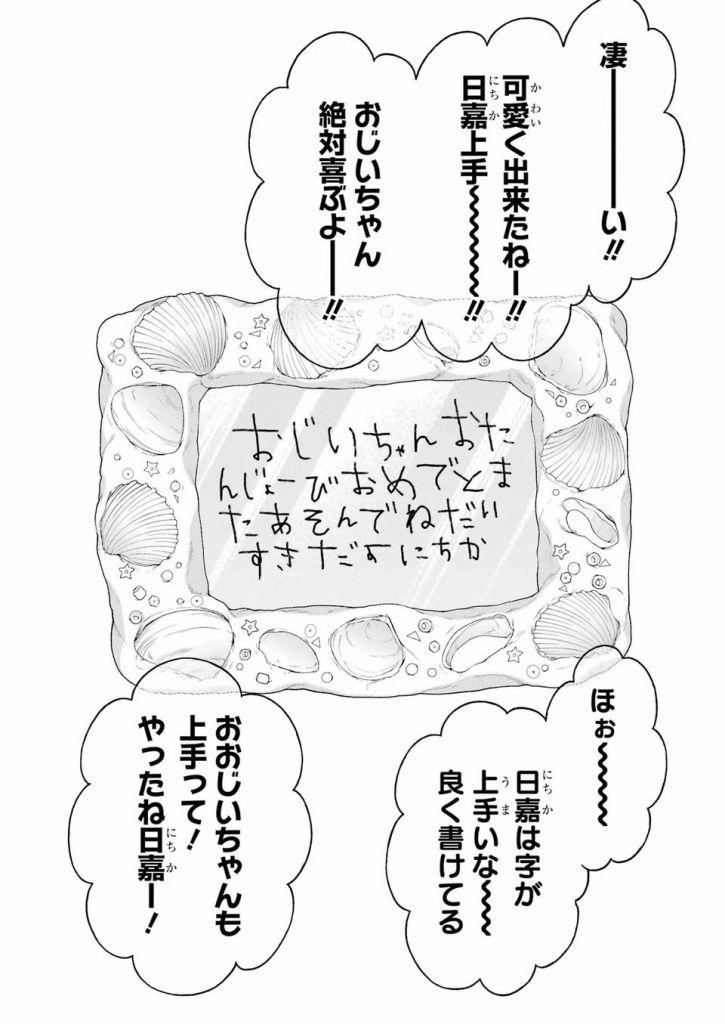 凄――――い!!
可愛く出来たねー!!
日嘉上手〜〜〜〜〜!!
おじいちゃん
絶対喜ぶよ――!!
おじいちゃんおた
んじょーびおめでとま
たあそんでねだい
すきだよにちか
ほぉ〜〜〜〜
日嘉は字が
上手いな〜〜
良く書けてる
おおじいちゃんも
上手って!
やったね日嘉ー!